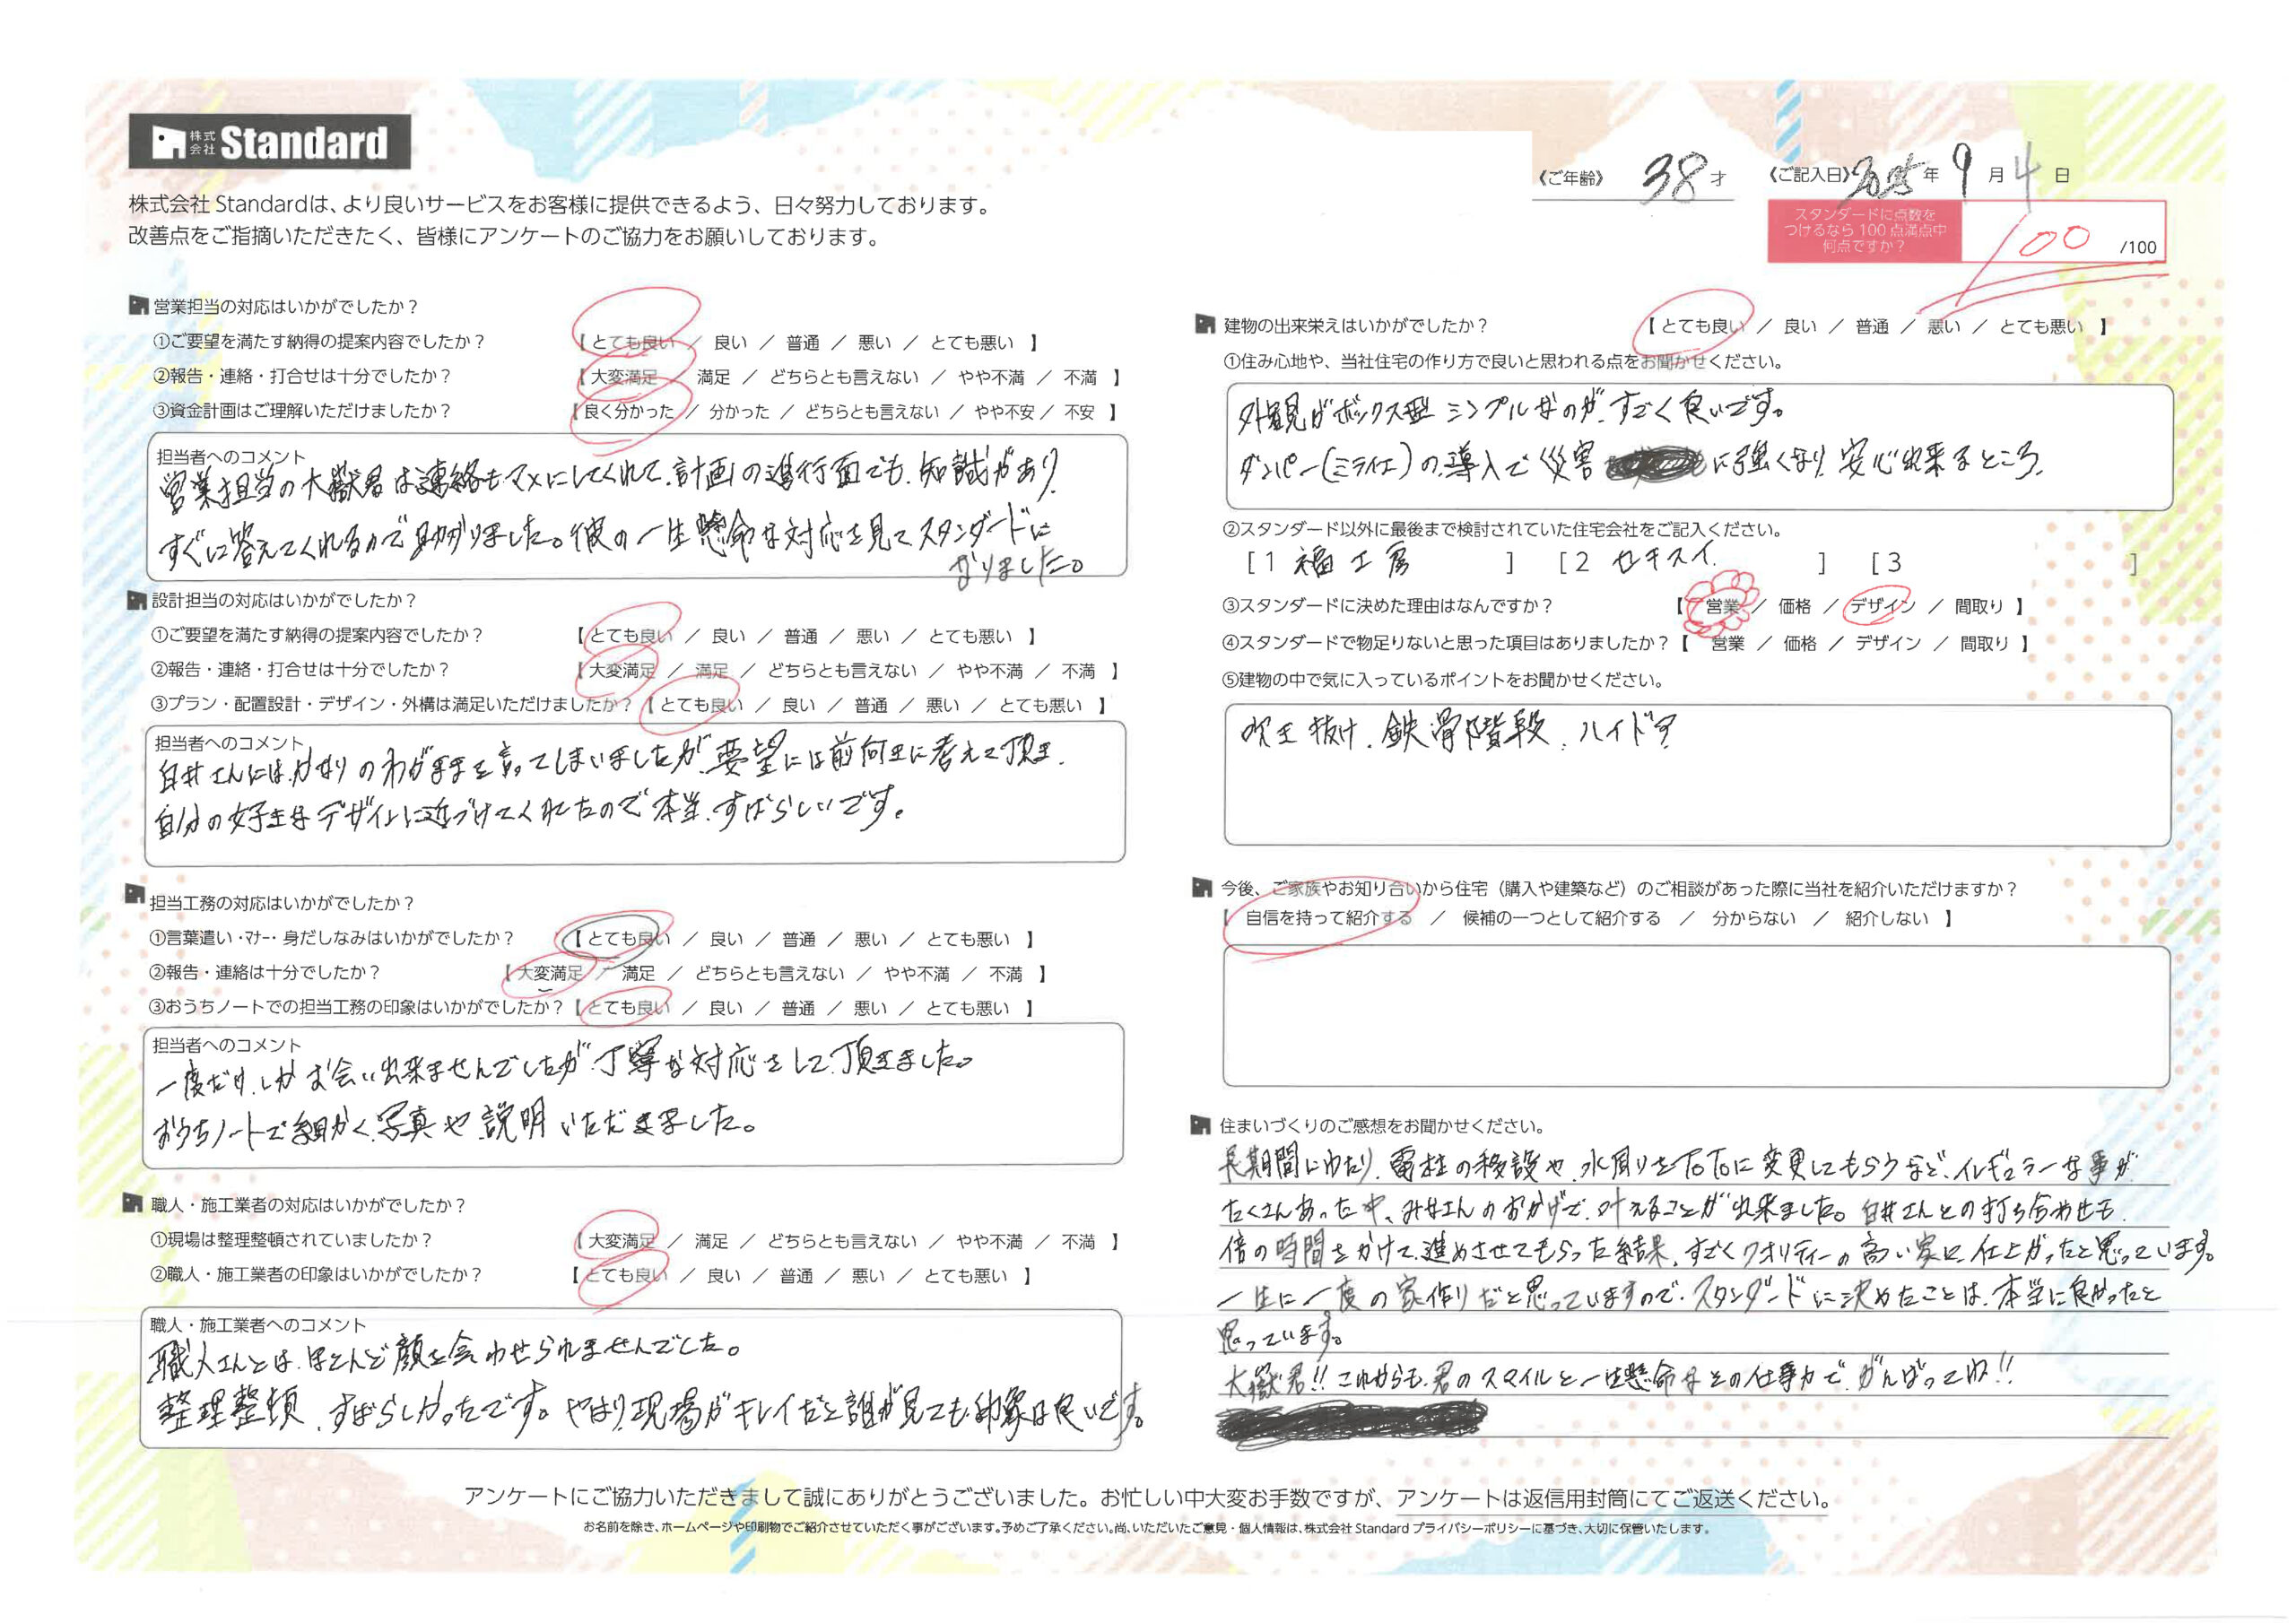 株式会社 Standard
株式会社 Standardは、より良いサービスをお客様に提供できるよう、日々努力しております。
改善点をご指摘いただきたく、皆様にアンケートのご協力をお願いしております。
《ご年齢》 38 才 《ご記入日》2025年 9月 4日
スタンダードに点数を
つけるなら 100 点満点中
何点ですか？
100 /100
営業担当の対応はいかがでしたか？
①ご要望を満たす納得の提案内容でしたか？ 【 とても良い ／ 良い ／ 普通 ／ 悪い ／ とても悪い 】
②報告・連絡・打合せは十分でしたか？ 【 大変満足 ／ 満足 ／ どちらとも言えない ／ やや不満 ／ 不満 】
③資金計画はご理解いただけましたか？ 【 良く分かった ／ 分かった ／ どちらとも言えない ／ やや不安 ／ 不安 】
担当者へのコメント
営業担当の大嶽君は連絡もマメにしてくれて、計画の進行面でも、知識があり、
すぐに答えてくれるので助かりました。彼の一生懸命な対応を見てスタンダードに
なりました。
設計担当の対応はいかがでしたか？
①ご要望を満たす納得の提案内容でしたか？ 【 とても良い ／ 良い ／ 普通 ／ 悪い ／ とても悪い 】
②報告・連絡・打合せは十分でしたか？ 【 大変満足 ／ 満足 ／ どちらとも言えない ／ やや不満 ／ 不満 】
③プラン・配置設計・デザイン・外構は満足いただけましたか？ 【 とても良い ／ 良い ／ 普通 ／ 悪い ／ とても悪い 】
担当者へのコメント
白井さんには、かなりのわがままを言ってしまいましたが、要望には前向きに考えて頂き、
自分の好きなデザインに近づけてくれたので本当、すばらしいです。
担当工務の対応はいかがでしたか？
①言葉遣い・マナー・身だしなみはいかがでしたか？ 【 とても良い ／ 良い ／ 普通 ／ 悪い ／ とても悪い 】
②報告・連絡は十分でしたか？ 【 大変満足 ／ 満足 ／ どちらとも言えない ／ やや不満 ／ 不満 】
③おうちノートでの担当工務の印象はいかがでしたか？ 【 とても良い ／ 良い ／ 普通 ／ 悪い ／ とても悪い 】
担当者へのコメント
一度だけしかお会い出来ませんでしたが、丁寧な対応をして頂きました。
おうちノートで細かく、写真や説明いただきました。
職人・施工業者の対応はいかがでしたか？
①現場は整理整頓されていましたか？ 【 大変満足 ／ 満足 ／ どちらとも言えない ／ やや不満 ／ 不満 】
②職人・施工業者の印象はいかがでしたか？ 【 とても良い ／ 良い ／ 普通 ／ 悪い ／ とても悪い 】
職人・施工業者へのコメント
職人さんとは、ほとんど顔を会わせられませんでした。
整理整頓、すばらしかったです。やはり、現場がキレイだと誰が見ても印象は良いです。
建物の出来栄えはいかがでしたか？ 【 とても良い ／ 良い ／ 普通 ／ 悪い ／ とても悪い 】
①住み心地や、当社住宅の作り方で良いと思われる点をお聞かせください。
外観がボックス型 シンプルなのが、すごく良いです。
ダンパー(ミライエ)の導入で災害 に強くなり、安心出来るところ。
②スタンダード以外に最後まで検討されていた住宅会社をご記入ください。
[ 1 福工房 ] [ 2 セキスイ ] [ 3 ]
③スタンダードに決めた理由はなんですか？ 【 営業 ／ 価格 ／ デザイン ／ 間取り 】
④スタンダードで物足りないと思った項目はありましたか？ 【 営業 ／ 価格 ／ デザイン ／ 間取り 】
⑤建物の中で気に入っているポイントをお聞かせください。
吹き抜け、鉄骨階段、ハイドア
今後、ご家族やお知り合いから住宅（購入や建築など）のご相談があった際に当社を紹介いただけますか？
【 自信を持って紹介する ／ 候補の一つとして紹介する ／ 分からない ／ 紹介しない 】
住まいづくりのご感想をお聞かせください。
長期間にわたり、電柱の移設や、水周りをTOTOに変更してもらうなど、イレギュラーな事が
たくさんあった中、みなさんのおかげで、叶えることが出来ました。白井さんとの打ち合わせも
倍の時間をかけて、進めさせてもらった結果、すごくクオリティーの高い家に仕上がったと思っています。
一生に一度の家作りだと思っていますので、スタンダードに決めたことは、本当に良かったと
思っています。
大嶽君!! これからも、君のスマイルと一生懸命なその仕事力で、がんばってね!!
アンケートにご協力いただきまして誠にありがとうございました。お忙しい中大変お手数ですが、アンケートは返信用封筒にてご返送ください。
お名前を除き、ホームページや印刷物でご紹介させていただく事がございます。予めご了承ください。尚、いただいたご意見・個人情報は、株式会社 Standard プライバシーポリシーに基づき、大切に保管いたします。